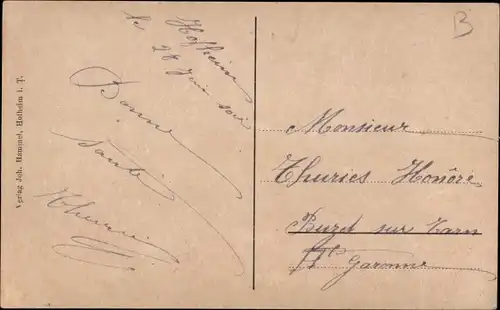 Verlag Joh. Hammel, Hofheim i. T.
Hofheim
le 28 Juin soir
Bonne
Santé
Thuries
B
Monsieur
Thuries Honoré
Buzet sur Tarn
Hte Garonne